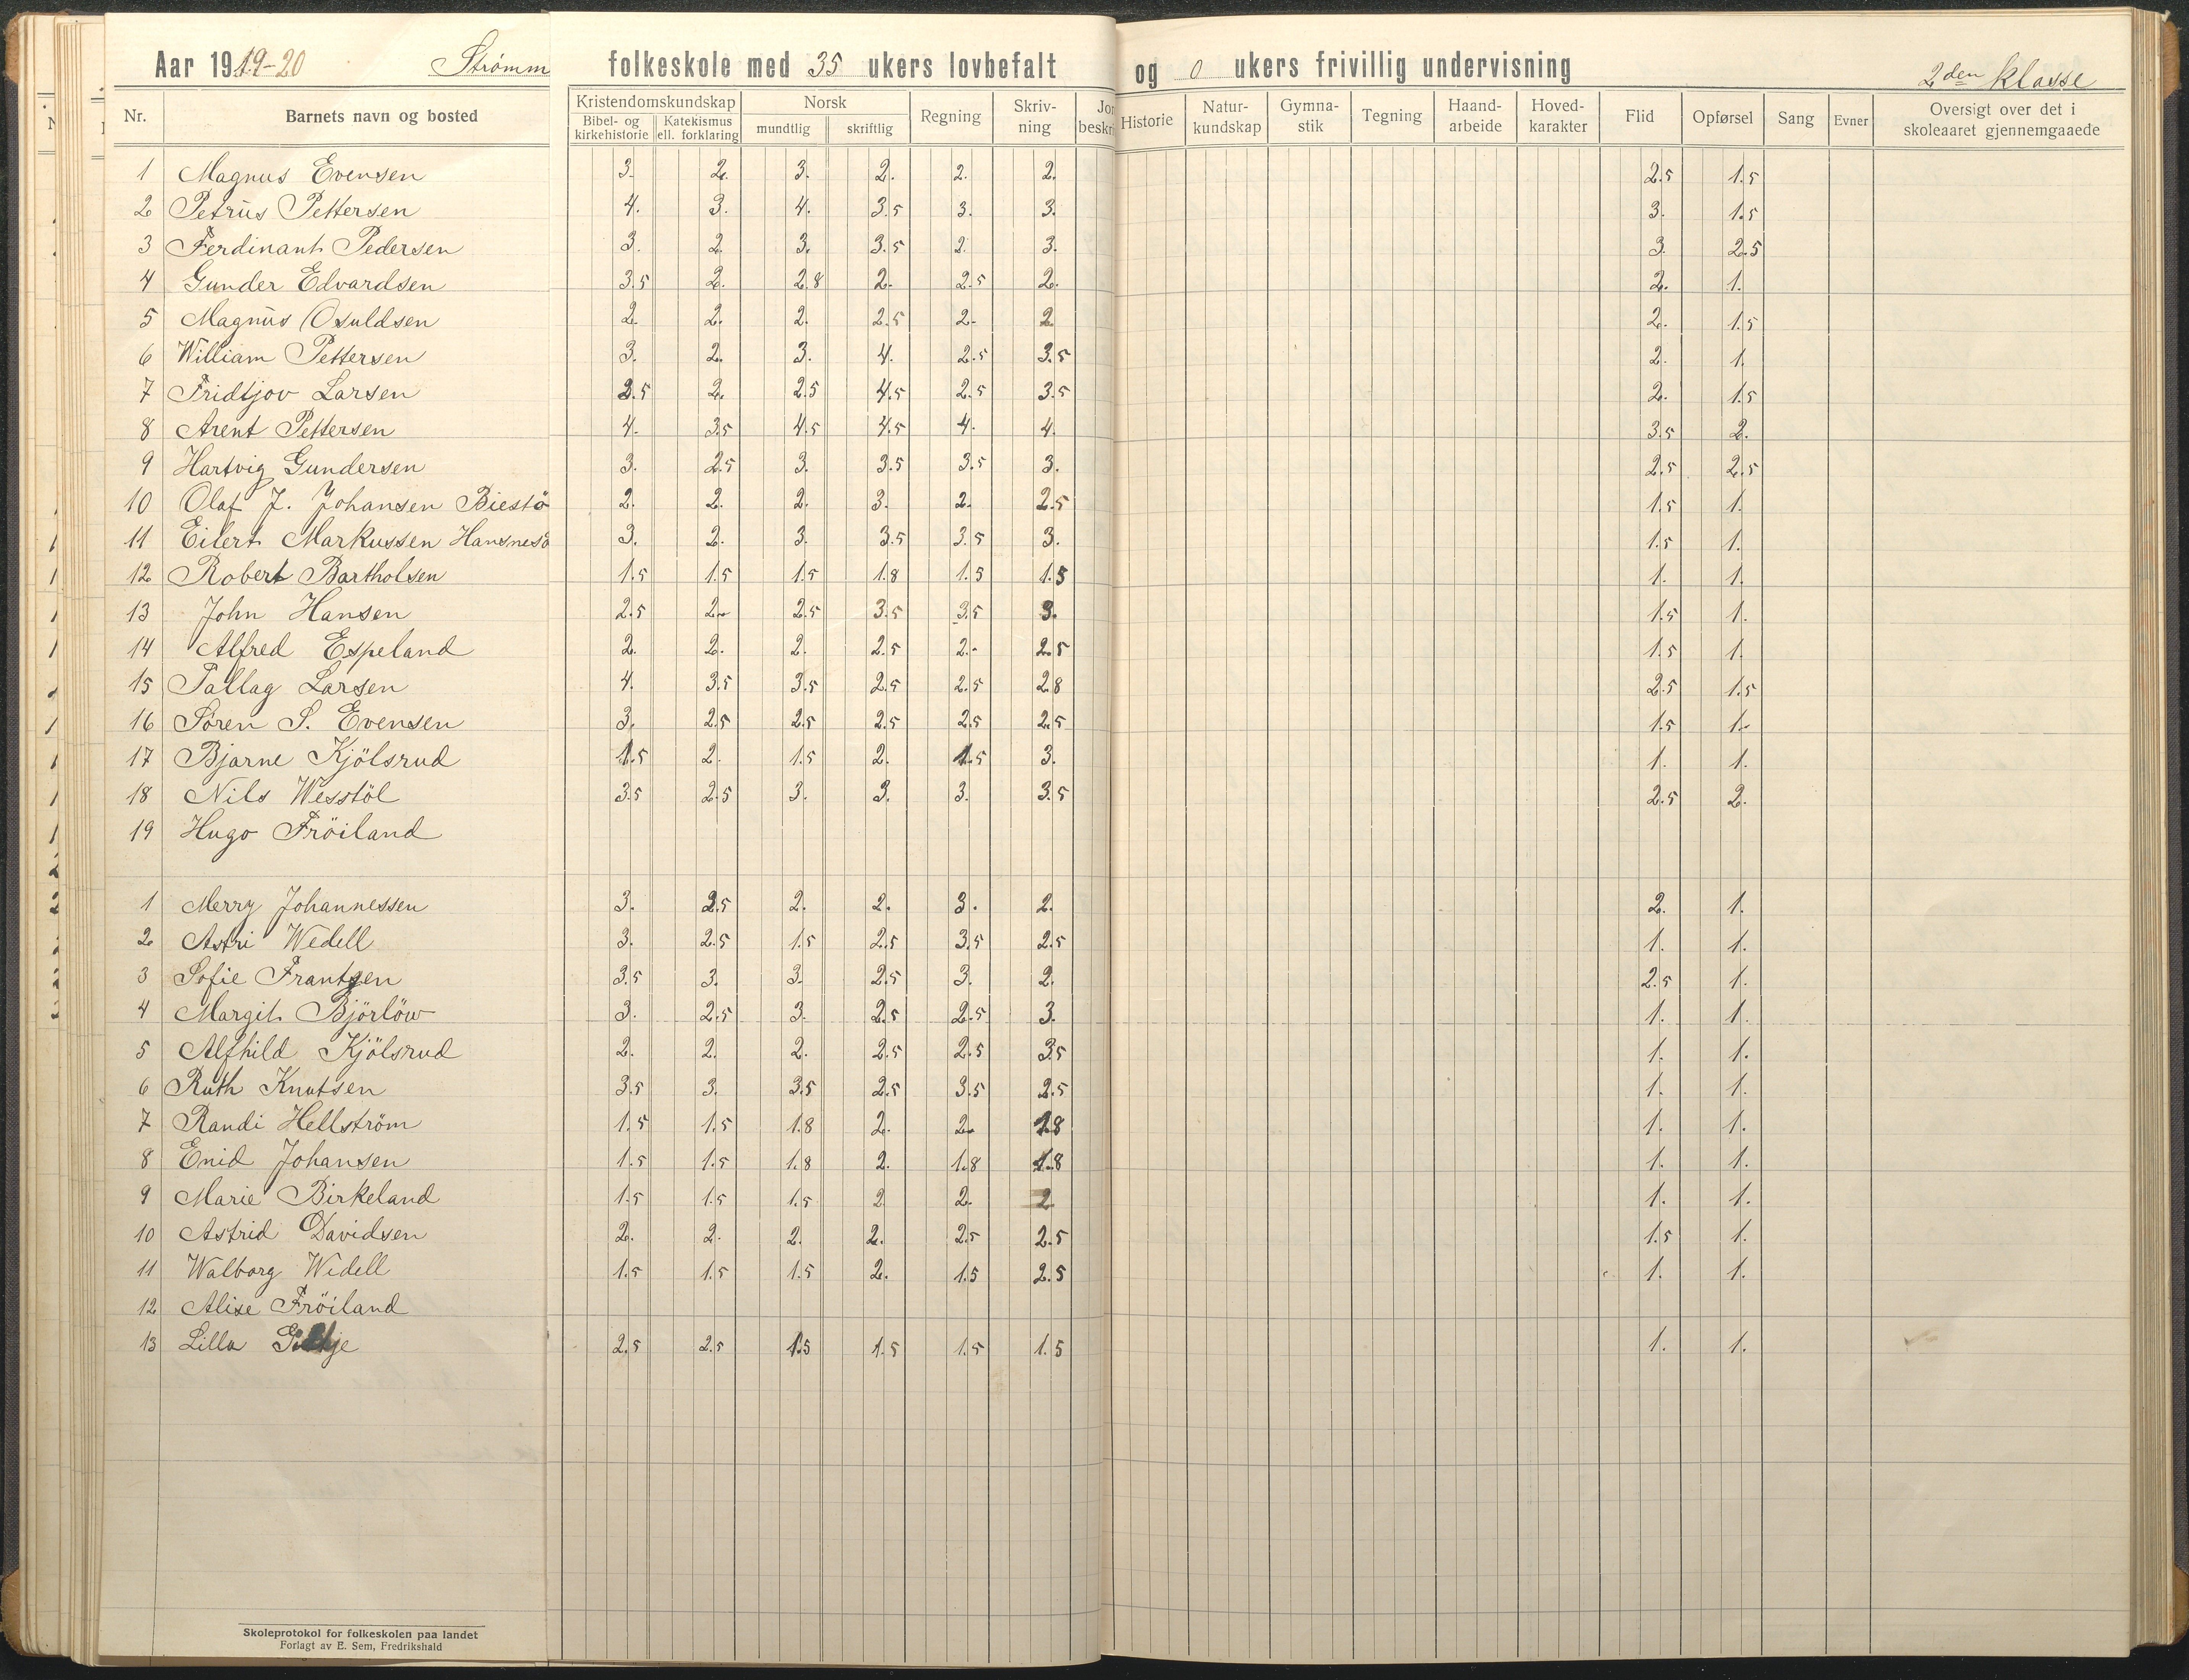 Aar 1919-20 Strømm folkeskole med 35 ukers lovbefalt og 0 ukers frivillig undervisning 2den klasse
Nr. Barnets navn og bosted Kristendomskundskap Bibel- og kirkehistorie Katekismus ell. forklaring Norsk mundtlig skriftlig Regning Skriv-ning Jor beskri Historie Natur-kundskap Gymna-stik Tegning Haand-arbeide Hoved-karakter Flid Opførsel Sang Evner Oversigt over det i skoleaaret gjennemgaaede
1 Magnus Evensen 3. 2. 3. 2. 2. 2. 2.5 1.5
2 Petrus Pettersen 4. 3. 4. 3.5 3. 3. 3. 1.5
3 Ferdinant Pedersen 3. 2. 3. 3.5 2. 3. 3. 2.5
4 Gunder Edvardsen 3.5 2. 2.8 2. 2.5 2. 2. 1.
5 Magnus Osuldsen 2. 2. 2. 2.5 2. 2 2. 1.5
6 William Pettersen 3. 2. 3. 4. 2.5 3.5 2. 1.
7 Fridtjov Larsen 2.5 2. 2.5 4.5 2.5 3.5 2. 1.5
8 Arent Pettersen 4. 3.5 4.5 4.5 4. 4. 3.5 2.
9 Hartvig Gundersen 3. 2.5 3. 3.5 3.5 3. 2.5 2.5
10 Olaf J. Johansen Biestö 2. 2. 2. 3. 2. 2.5 1.5 1.
11 Eilert Markussen Hansnesö 3. 2. 3. 3.5 3.5 3. 1.5 1.
12 Robert Bartholsen 1.5 1.5 1.5 1.8 1.5 1.5 1. 1.
13 John Hansen 2.5 2. 2.5 3.5 3.5 3. 1.5 1.
14 Alfred Espeland 2. 2. 2. 2.5 2. 2.5 1.5 1.
15 Tallag Larsen 4. 3.5 3.5 2.5 2.5 2.8 2.5 1.5
16 Sören S. Evensen 3. 2.5 2.5 2.5 2.5 2.5 1.5 1.
17 Bjarne Kjölsrud 1.5 2. 1.5 2. 1.5 3. 1. 1.
18 Nils Wesstöl 3.5 2.5 3. 3. 3. 3.5 2.5 2.
19 Hugo Fröiland
1 Merry Johannessen 3. 2.5 2. 2. 3. 2. 2. 1.
2 Astri Wedell 3. 2.5 1.5 2.5 3.5 2.5 1. 1.
3 Sofie Frantzen 3.5 3. 3. 2.5 3. 2. 2.5 1.
4 Margit Björlöw 3. 2.5 3. 2.5 2.5 3. 1. 1.
5 Alfhild Kjölsrud 2. 2. 2. 2.5 2.5 3.5 1. 1.
6 Ruth Knutsen 3.5 3. 3.5 2.5 3.5 2.5 1. 1.
7 Randi Hellström 1.5 1.5 1.8 2. 2. 1.8 1. 1.
8 Enid Johansen 1.5 1.5 1.8 2. 1.8 1.8 1. 1.
9 Marie Birkeland 1.5 1.5 1.5 2 2. 2 1. 1.
10 Astrid Davidsen 2. 2. 2. 2. 2.5 2.5 1.5 1.
11 Walborg Widell 1.5 1.5 1.5 2. 1.5 2.5 1. 1.
12 Alise Fröiland
13 Lilla 2.5 2.5 1.5 1.5 1.5 1.5 1. 1.
Skoleprotokol for folkeskolen paa landet
Forlagt av E. Sem, Fredrikshald